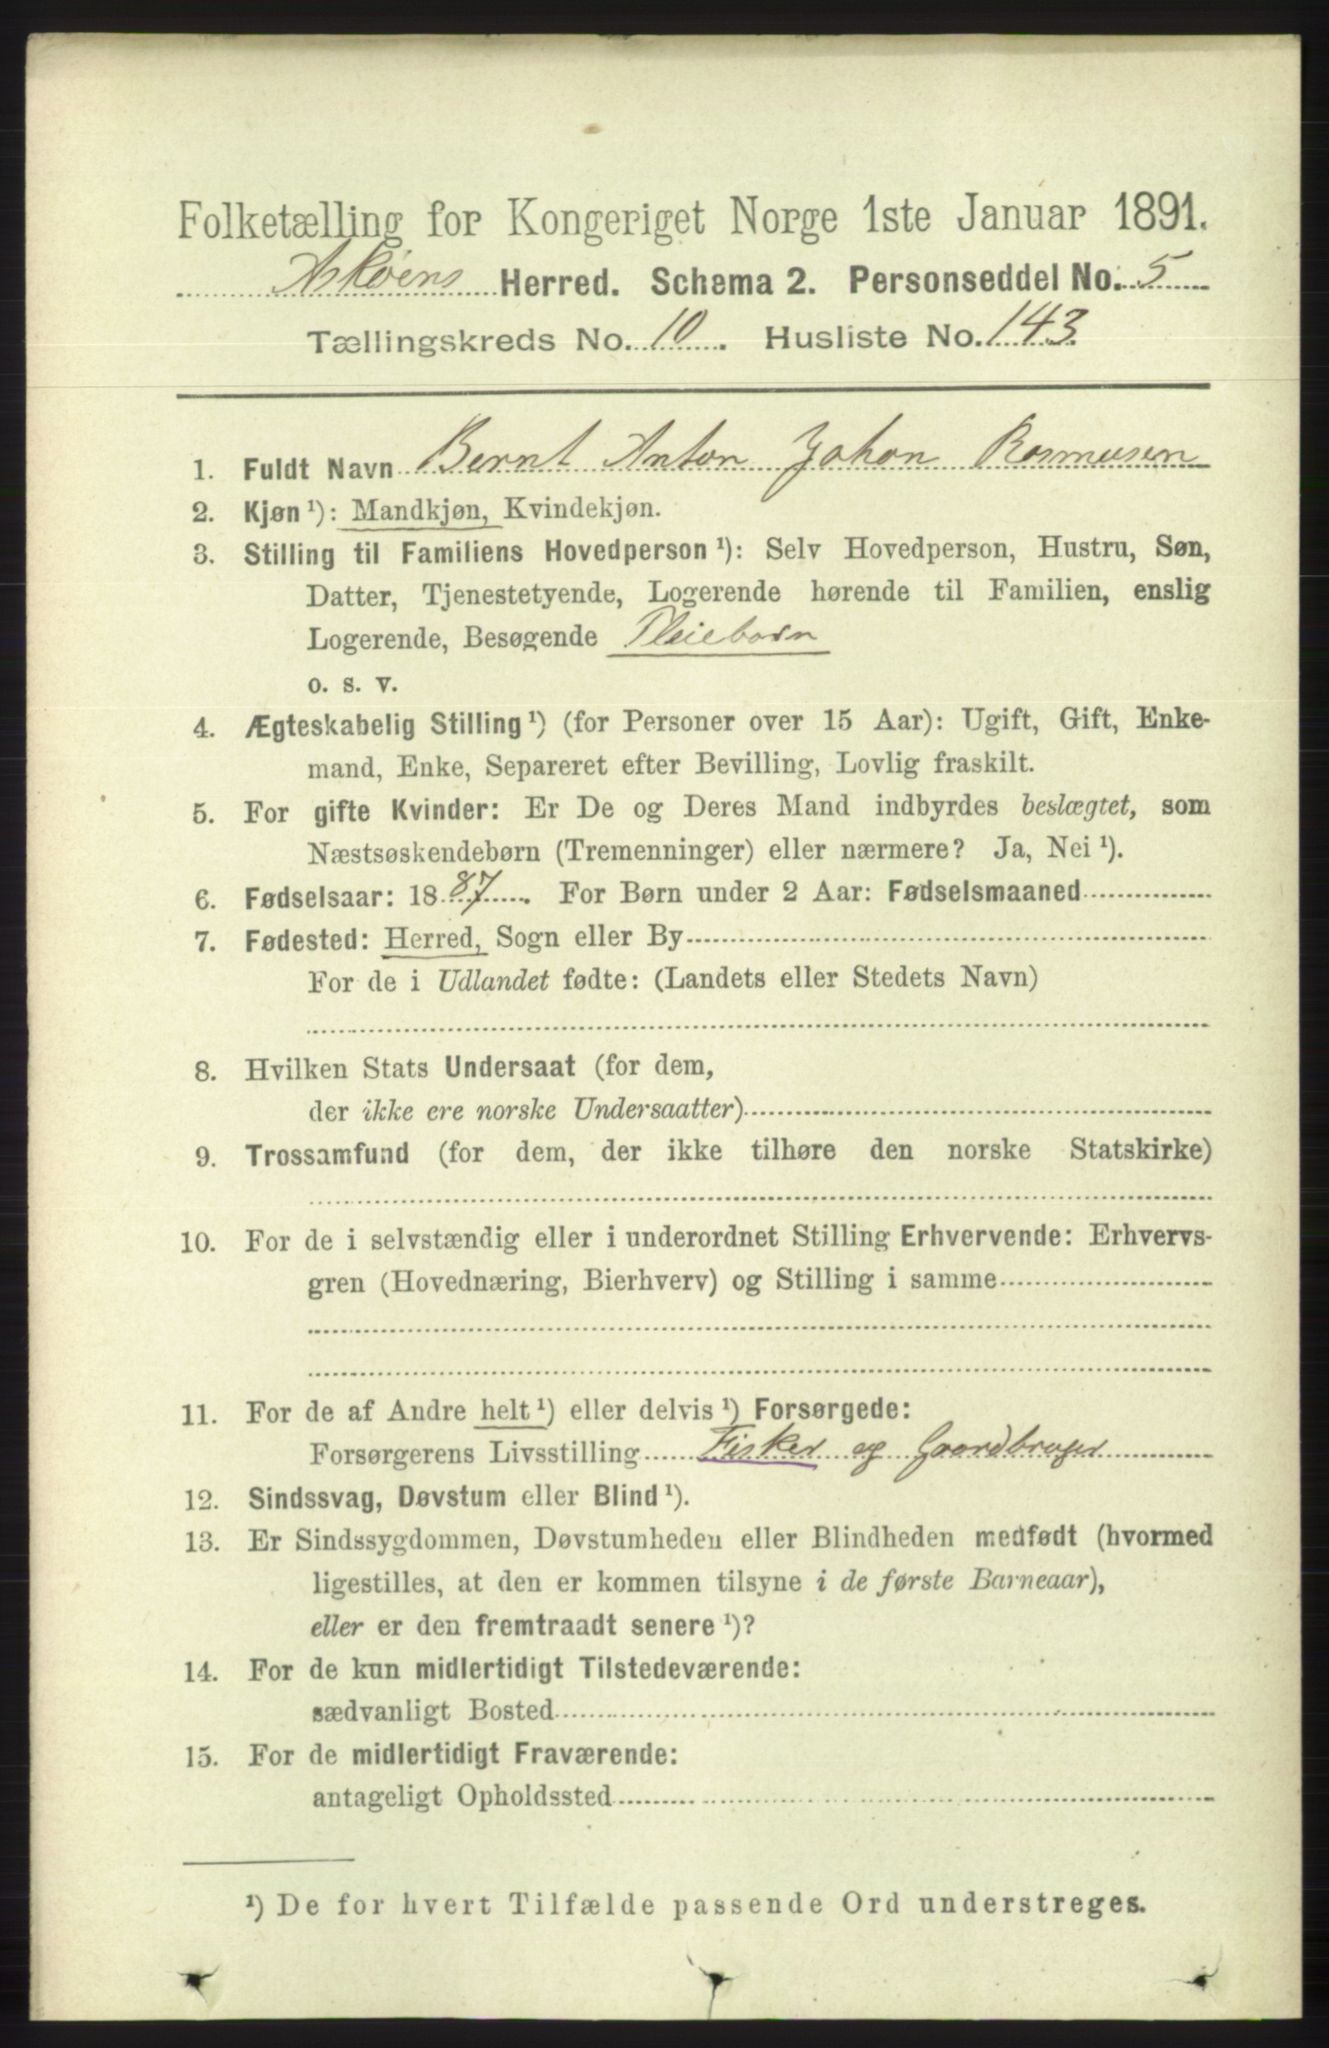 Folketælling for Kongeriget Norge 1ste Januar 1891.
Askøens Herred. Schema 2. Personseddel No. 5
Tællingskreds No. 10. Husliste No. 143
1. Fuldt Navn Bernt Anton Johan Rasmusen
2. Kjøn ¹): Mandkjøn, Kvindekjøn.
3. Stilling til Familiens Hovedperson ¹): Selv Hovedperson, Hustru, Søn,
Datter, Tjenestetyende, Logerende hørende til Familien, enslig
Logerende, Besøgende Pleiebarn
o. s. v.
4. Ægteskabelig Stilling ¹) (for Personer over 15 Aar): Ugift, Gift, Enke-
mand, Enke, Separeret efter Bevilling, Lovlig fraskilt.
5. For gifte Kvinder: Er De og Deres Mand indbyrdes beslægtet, som
Næstsøskendebørn (Tremenninger) eller nærmere? Ja, Nei ¹).
6. Fødselsaar: 1887. For Børn under 2 Aar: Fødselsmaaned
7. Fødested: Herred, Sogn eller By
For de i Udlandet fødte: (Landets eller Stedets Navn)
8. Hvilken Stats Undersaat (for dem,
der ikke ere norske Undersaatter)
9. Trossamfund (for dem, der ikke tilhøre den norske Statskirke)
10. For de i selvstændig eller i underordnet Stilling Erhvervende: Erhvervs-
gren (Hovednæring, Bierhverv) og Stilling i samme
11. For de af Andre helt ¹) eller delvis ¹) Forsørgede:
Forsørgerens Livsstilling Fisker og Gaardbruger
12. Sindssvag, Døvstum eller Blind ¹).
13. Er Sindssygdommen, Døvstumheden eller Blindheden medfødt (hvormed
ligestilles, at den er kommen tilsyne i de første Barneaar),
eller er den fremtraadt senere ¹)?
14. For de kun midlertidigt Tilstedeværende:
sædvanligt Bosted
15. For de midlertidigt Fraværende:
antageligt Opholdssted
¹) De for hvert Tilfælde passende Ord understreges.